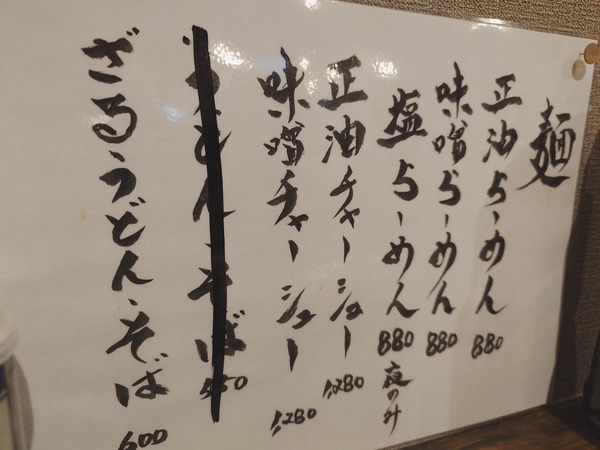 麺
正油らーめん 880
味噌らーめん 880
塩らーめん 880 夜のみ
正油チャーシュー 1,280
味噌チャーシュー 1,280
うどん、そば 550
ざるうどん、そば 600